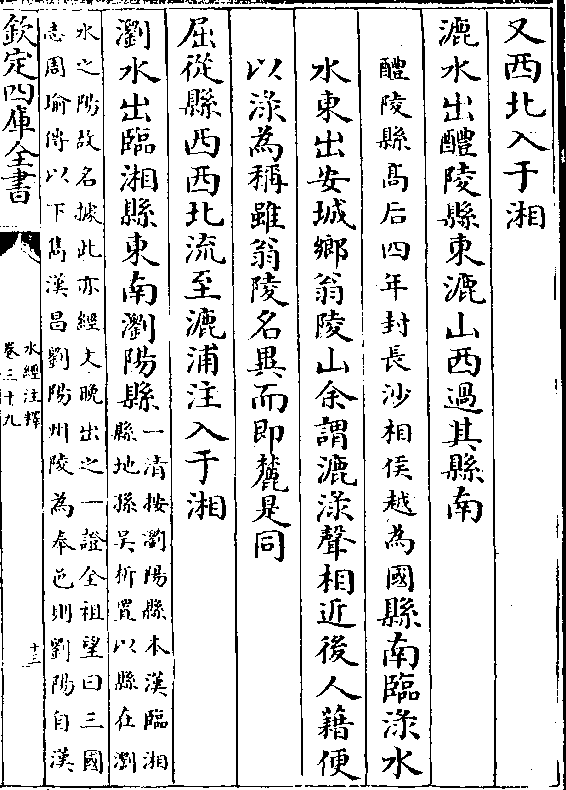 又西北入于湘
漉水出醴陵縣東漉山西過其縣南
醴陵縣髙后四年封長沙相侯越為國縣南臨淥水
水東出安城鄉翁陵山余謂漉淥聲相近後人藉便
以淥為稱雖翁陵名異而即麓是同
屈從縣西西北流至漉浦注入于湘
瀏水出臨湘縣東南瀏陽縣
一清按瀏陽縣本漢臨湘
縣地孫吴析置以縣在瀏
水之陽故名據此亦經文晚出之一證全祖望曰三國
志周瑜傳以下雋漢昌劉陽州陵為奉邑則劉陽自漢
欽定四庫全書
水經注釋
卷三十九
十三